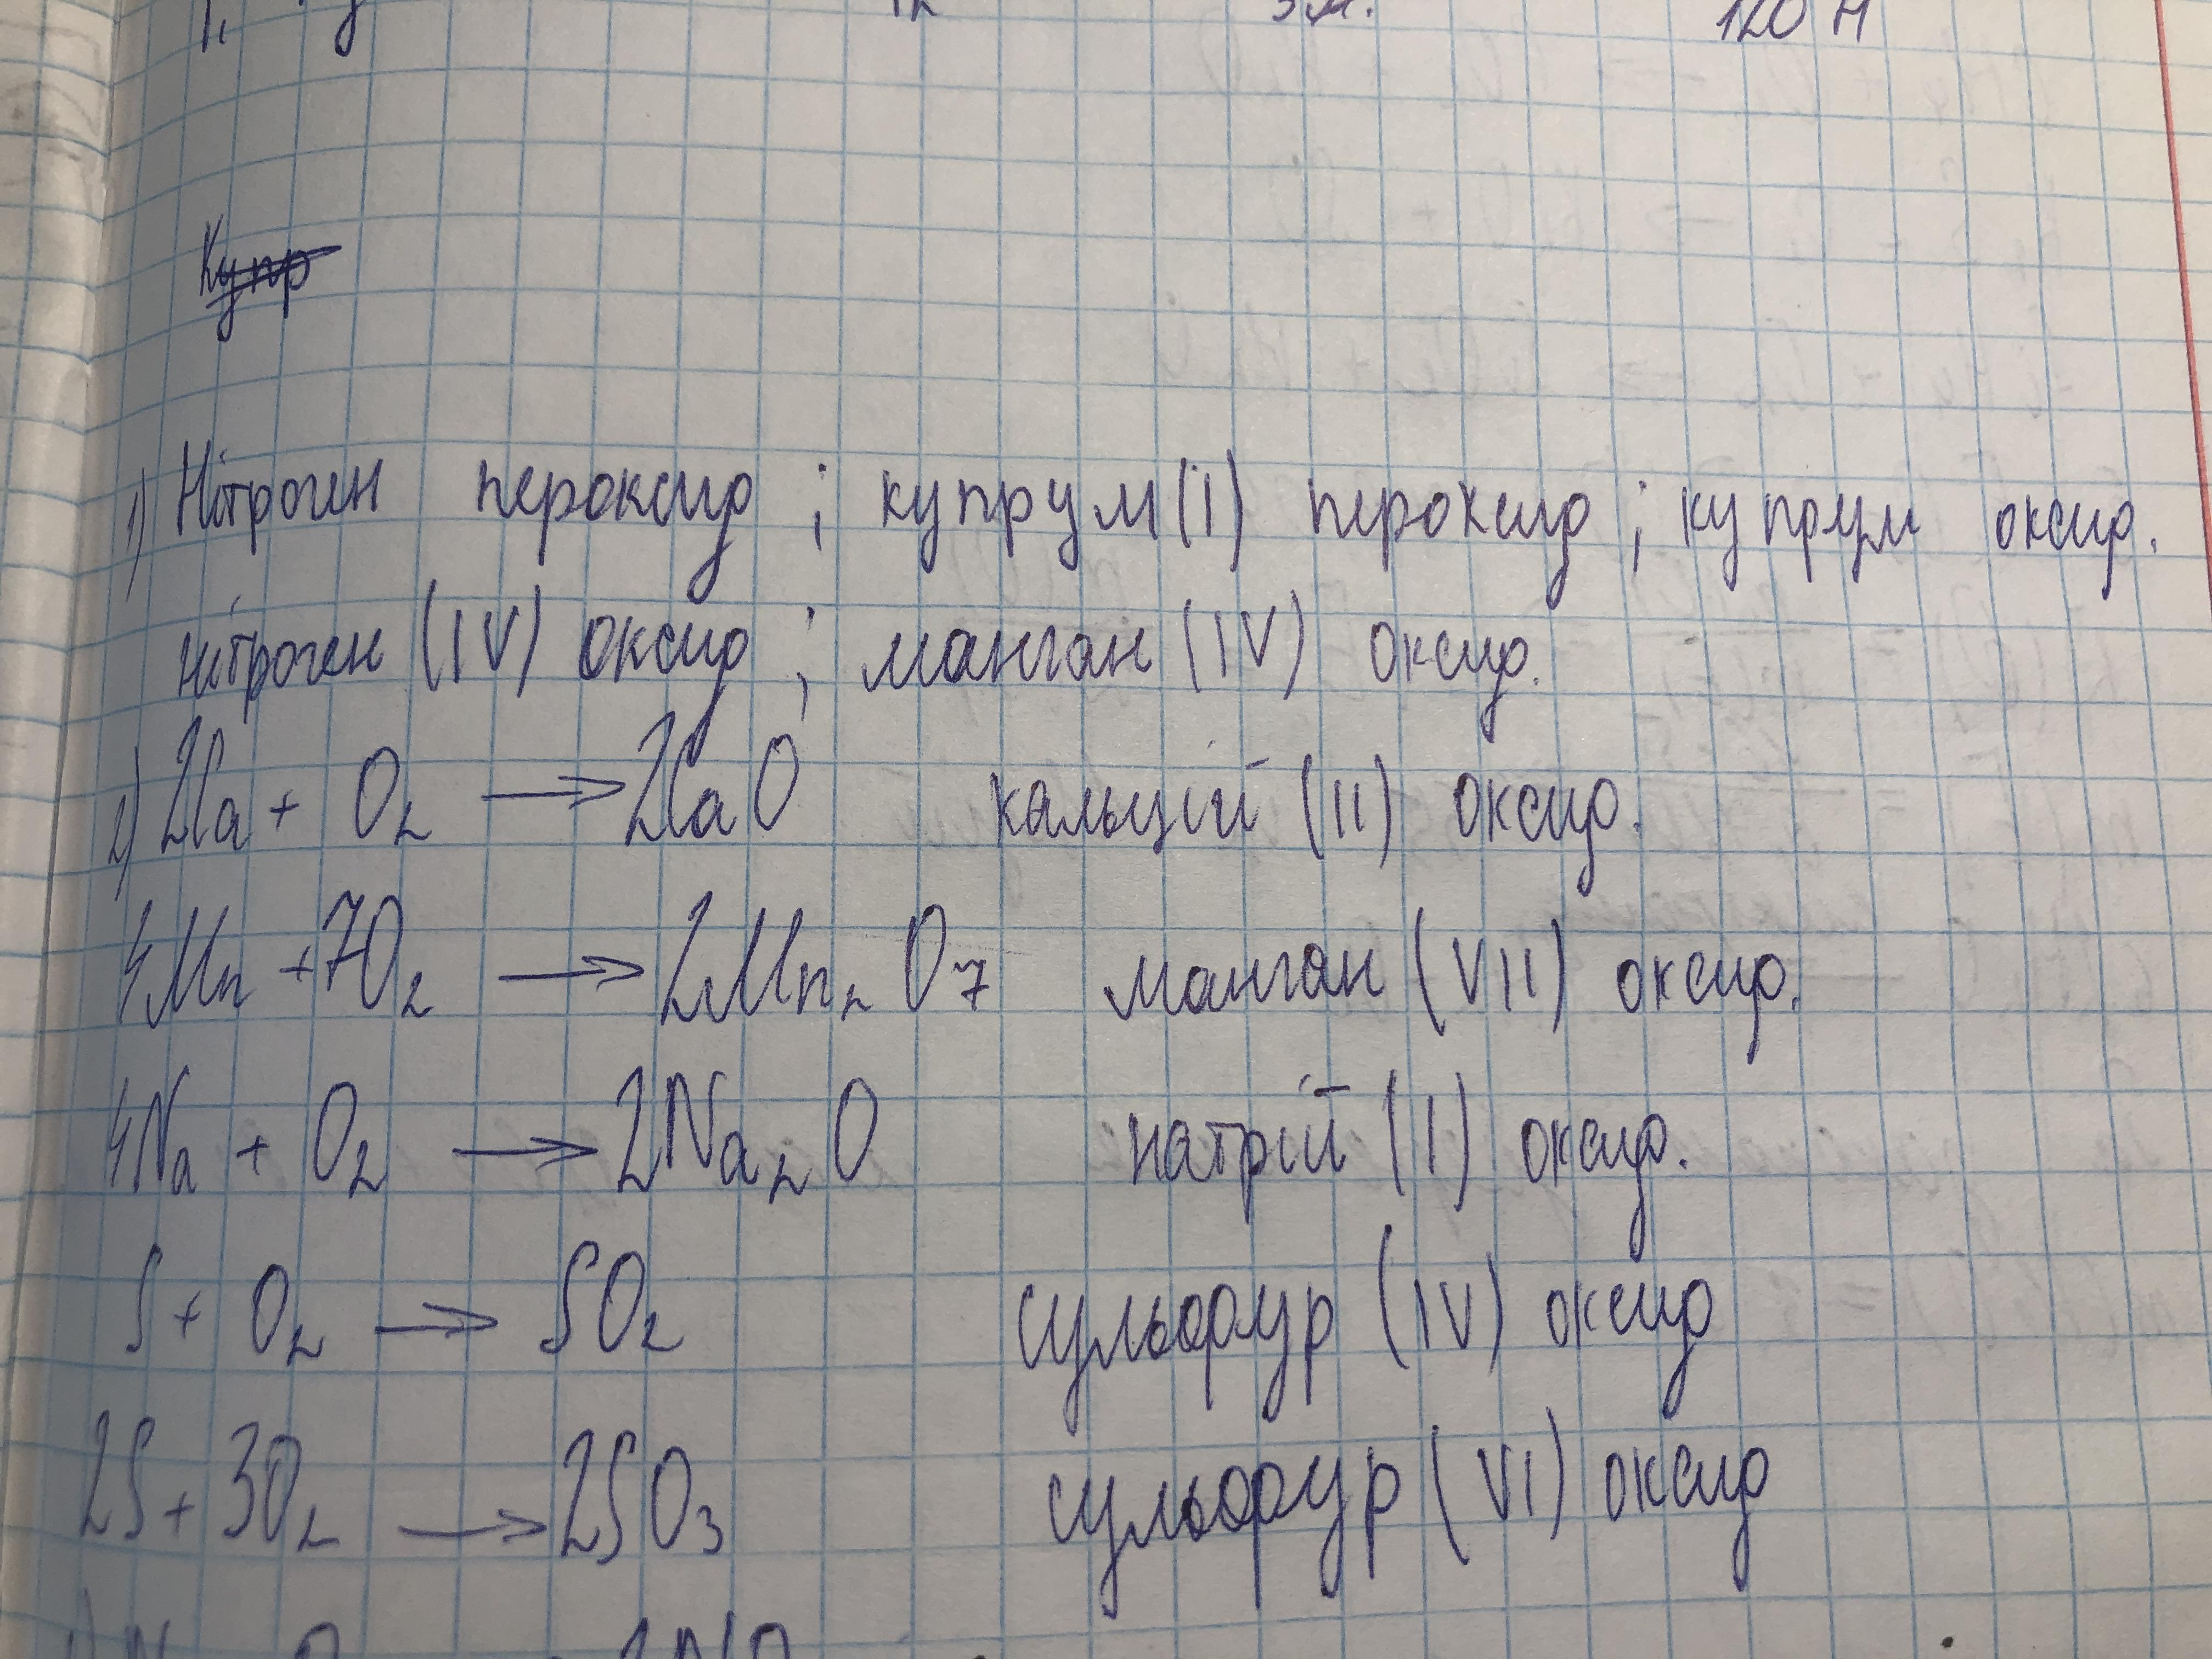 120 Н
Купр
1) Нітроген пероксид ; купрум(i) пероксид ; купрум оксид.
нітроген (IV) оксид ; манган (IV) оксид.
2) 2Ca + O₂ → 2CaO кальцій (II) оксид.
4Mn + 7O₂ → 2Mn₂O₇ манган (VII) оксид.
4Na + O₂ → 2Na₂O натрій (I) оксид.
S + O₂ → SO₂ сульфур (IV) оксид
2S + 3O₂ → 2SO₃ сульфур (VI) оксид